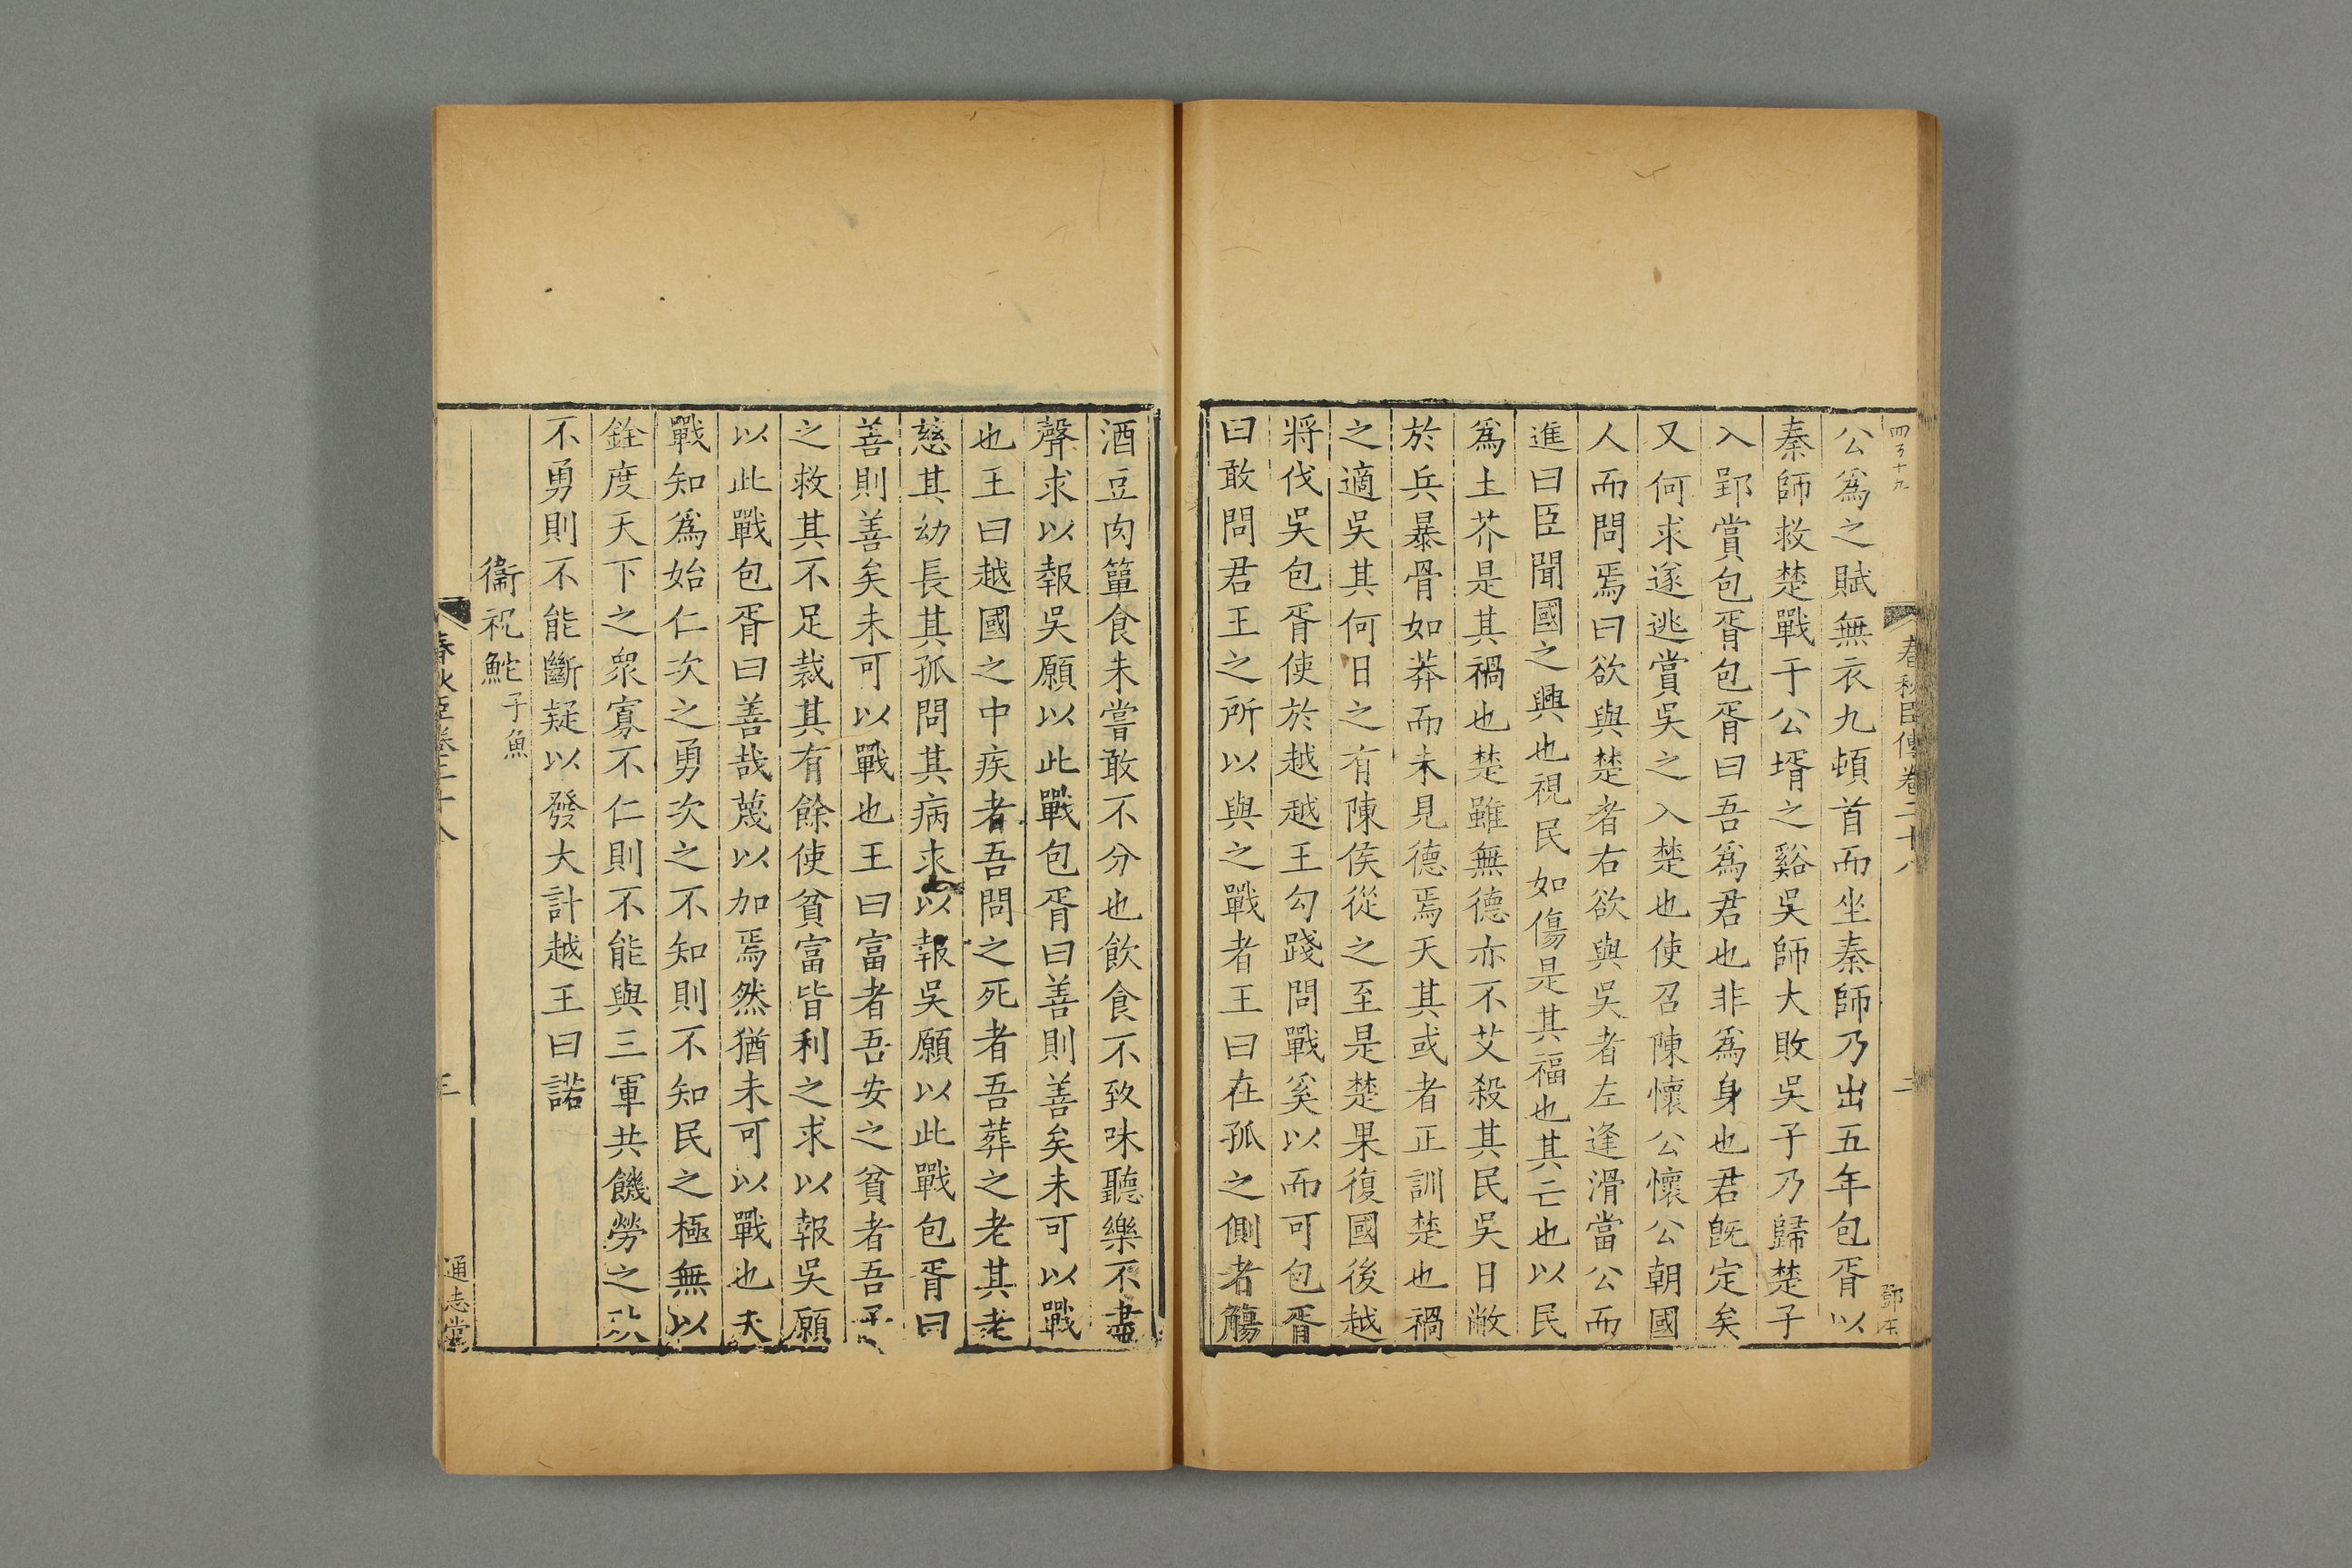 四百十九
春秋臣傳卷二十八
二
公爲之賦無衣九頓首而坐秦師乃出五年包胥以
秦師救楚戰于公壻之谿吳師大敗吳子乃歸楚子
入郢賞包胥包胥曰吾爲君也非爲身也君旣定矣
又何求遂逃賞吳之入楚也使召陳懷公懷公朝國
人而問焉曰欲與楚者右欲與吳者左逢滑當公而
進曰臣聞國之興也視民如傷是其福也其亡也以民
爲土芥是其禍也楚雖無德亦不艾殺其民吳日敝
於兵暴骨如莽而未見德焉天其或者正訓楚也禍
之適吳其何日之有陳侯從之至是楚果復國後越
將伐吳包胥使於越越王勾踐問戰奚以而可包胥
曰敢問君王之所以與之戰者王曰在孤之側者觴
酒豆肉簞食未嘗敢不分也飲食不致味聽樂不盡
聲求以報吳願以此戰包胥曰善則善矣未可以戰
也王曰越國之中疾者吾問之死者吾葬之老其老
慈其幼長其孤問其病求以報吳願以此戰包胥曰
善則善矣未可以戰也王曰富者吾安之貧者吾予
之救其不足裁其有餘使貧富皆利之求以報吳願
以此戰包胥曰善哉蔑以加焉然猶未可以戰也夫
戰知爲始仁次之勇次之不知則不知民之極無以
銓度天下之衆寡不仁則不能與三軍共饑勞之
不勇則不能斷疑以發大計越王曰諾
衞祝鮀子魚
春秋臣卷二十八
三
通志堂